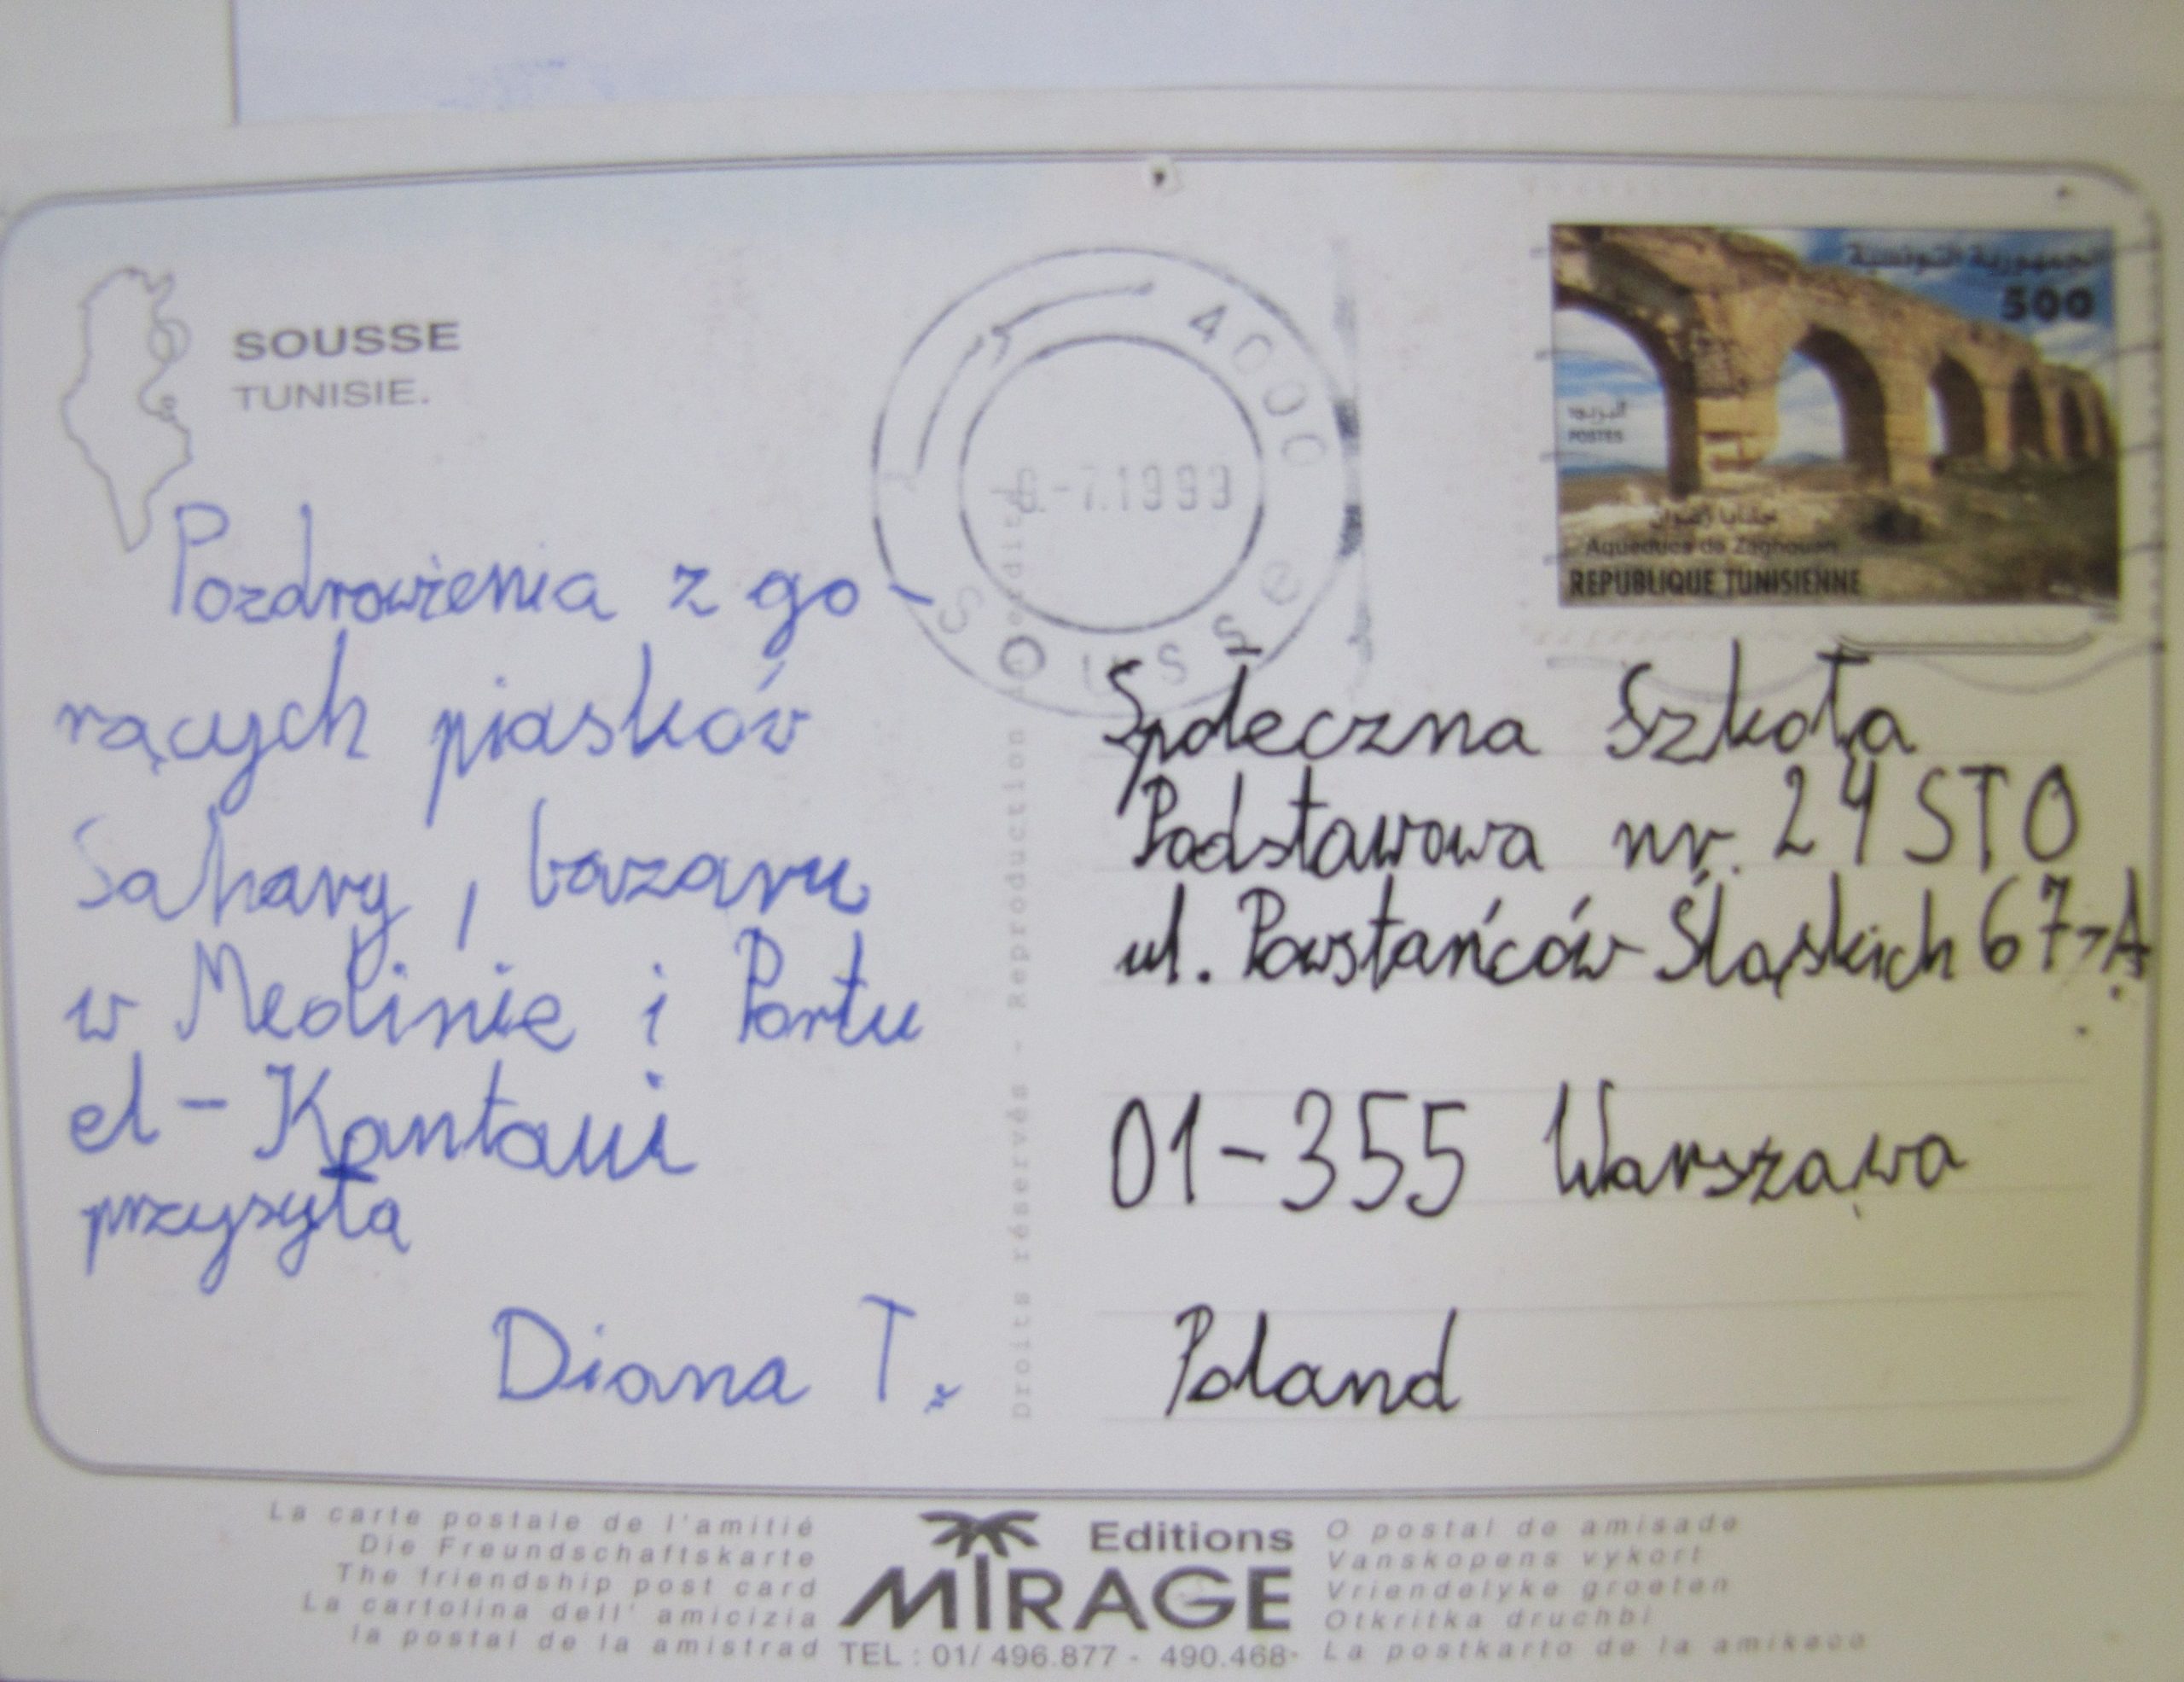 SOUSSE
TUNISIE.
Pozdrowienia z go-
rących piasków
Sahary, bazaru
w Medinie i Portu
el-Kantaui
przysyła
Diana T.
4000
-7.1999
Sousse
الجمهورية التونسية
500
البريد
POSTES
Aqueduc de Zaghouan
REPUBLIQUE TUNISIENNE
Społeczna Szkoła
Podstawowa nr. 24 STO
ul. Powstańców Śląskich 67-A
01-355 Warszawa
Poland
Droits réservés - Reproduction
La carte postale de l'amitié
Die Freundschaftskarte
The friendship post card
La cartolina dell' amicizia
la postal de la amistrad
Editions
MIRAGE
TEL : 01/ 496.877 - 490.468
O postal de amisade
Vanskapens vykort
Vriendelyke groeten
Otkritka druchbi
La postkarto de la amikeco